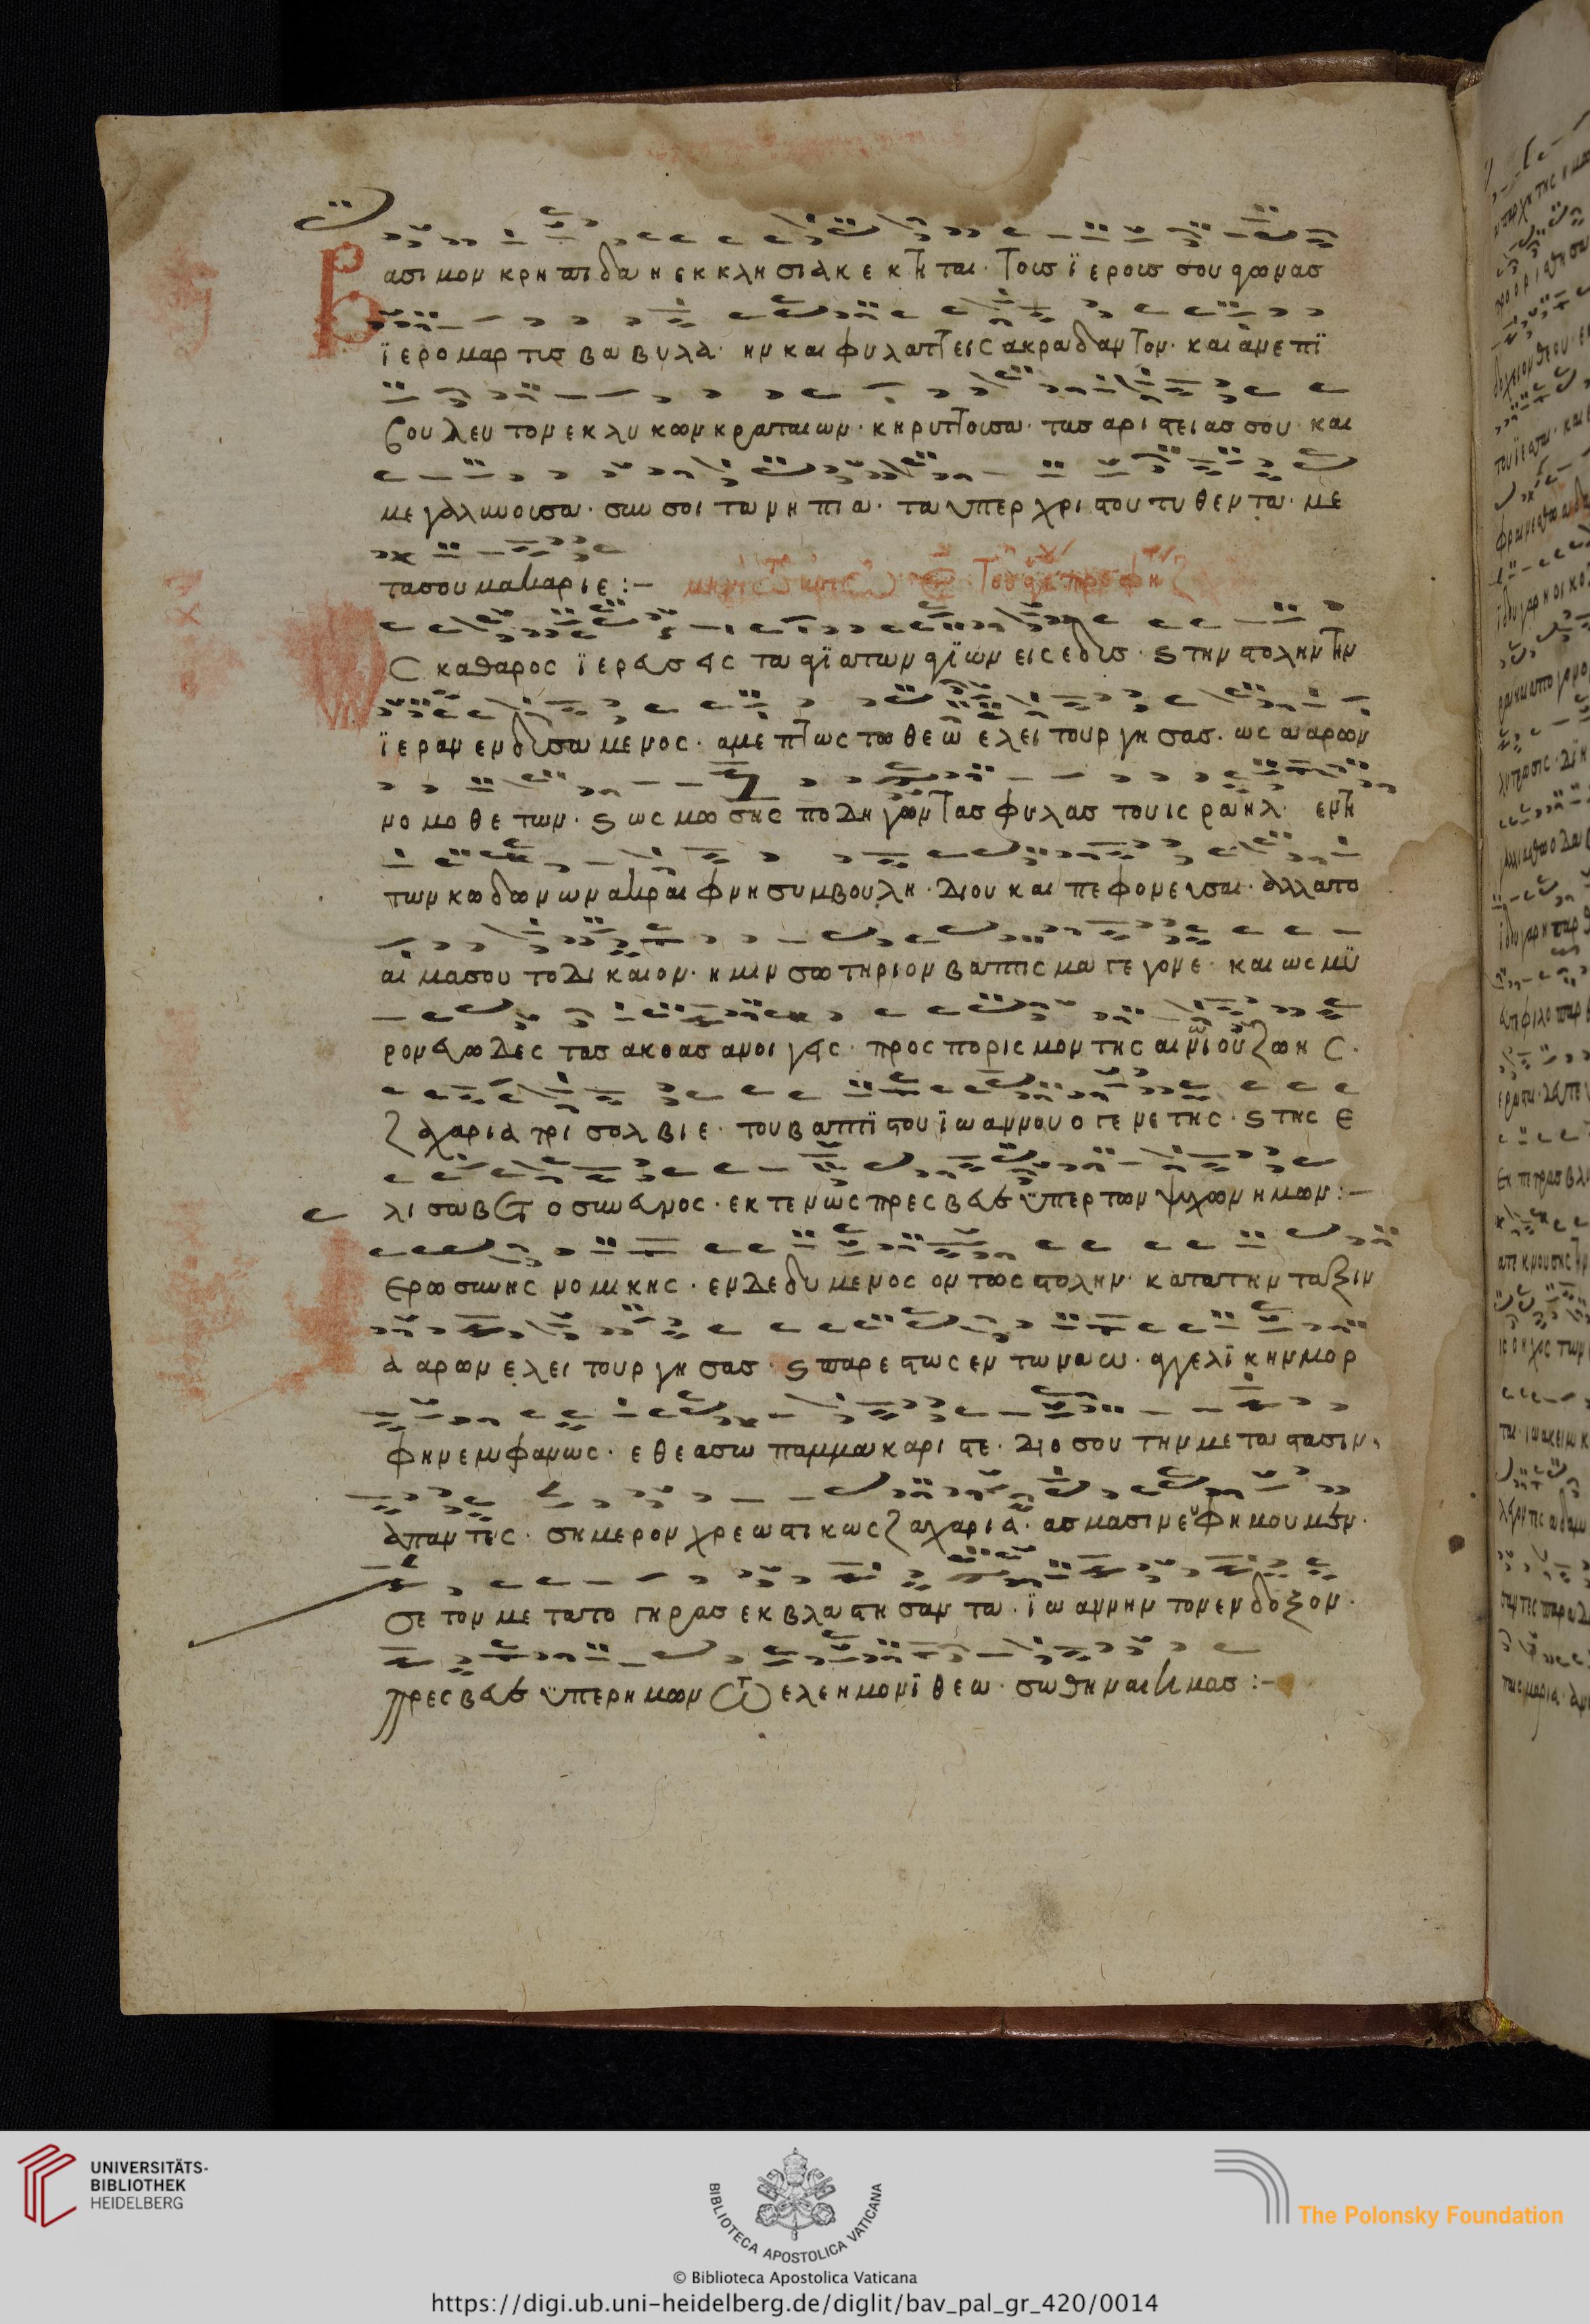 Βασιμον κρηπιδα η εκκλησια κεκτηται· τους ϊερους σου αγωνας
ϊερομαρτυς βαβυλα· ην και φυλαττεις ακραδαντον· και ανεπϊ
βουλευτον εκ λυκων κραταιων· κηρυττουσα· τας αριστειας σου και
μεγαλυνουσα· συν σοι τα νηπια· τα υπερ χριστου τυθεντα· με
τα σου μακαριε :–
ς καθαρος ϊερευς εις τα αγϊα των αγϊων εισεδυς· ϛ την στολην την
ϊεραν ενδυσαμενος· αμεπτως τω θεω ελειτουργησας· ως ααρων
νομοθετων· ϛ ως μωσης ποδηγων τας φυλας του ισραηλ· εν τη
των κωδωνων ακραιφνη συμβουλη· διο και πεφονευσαι· αλλα το
αιμα σου το δικαιον· ημιν σωτηριον βαπτισμα γεγονε· και ως μϋ
ρον ευωδες τας ακοας ανοιγεις· προς πορισμον της αιωνιου ζωης·
Ζαχαρια τρισολβιε· του βαπτϊστου ϊωαννου ο γενετης· ϛ της ε
λισαβετ ο συνευνος· εκτενως πρεσβευε ϋπερ των ψυχων ημων :–
ερωσυνης νομικης· ενδεδυμενος οντως στολην· κατα την ταξιν
α αρων ελειτουργησας· ϛ παρεστως εν τω ναω· αγγελϊκην μορ
φην εμφανως· εθεασω παμμακαριστε· διο σου την μεταστασιν
απαντες· σημερον χρεωστικως ζαχαρια· ασμασιν ευφημουμεν·
σε τον μετα το γηρας εκβλαστησαντα· ϊωαννην τον ενδοξον·
πρεσβευε ϋπερ ημων τω ελεημονϊ θεω· σωθηναι ημας :–
UNIVERSITÄTS-
BIBLIOTHEK
HEIDELBERG
BIBLIOTECA APOSTOLICA VATICANA
The Polonsky Foundation
© Biblioteca Apostolica Vaticana
https://digi.ub.uni-heidelberg.de/diglit/bav_pal_gr_420/0014